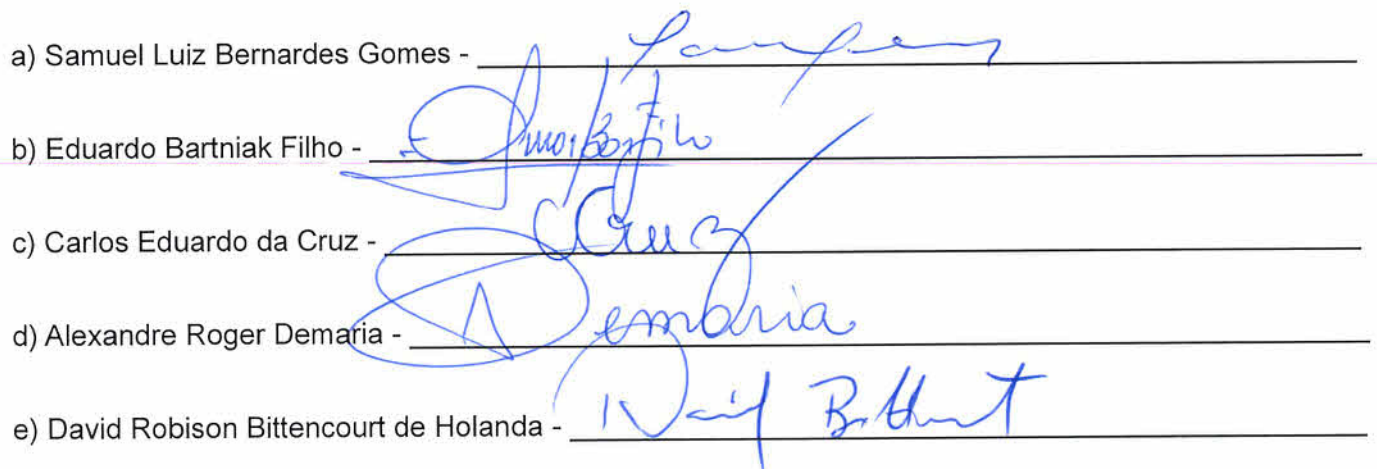 a) Samuel Luiz Bernardes Gomes -
b) Eduardo Bartniak Filho - Filho
c) Carlos Eduardo da Cruz - Cruz
d) Alexandre Roger Demaria - Demaria
e) David Robison Bittencourt de Holanda - David